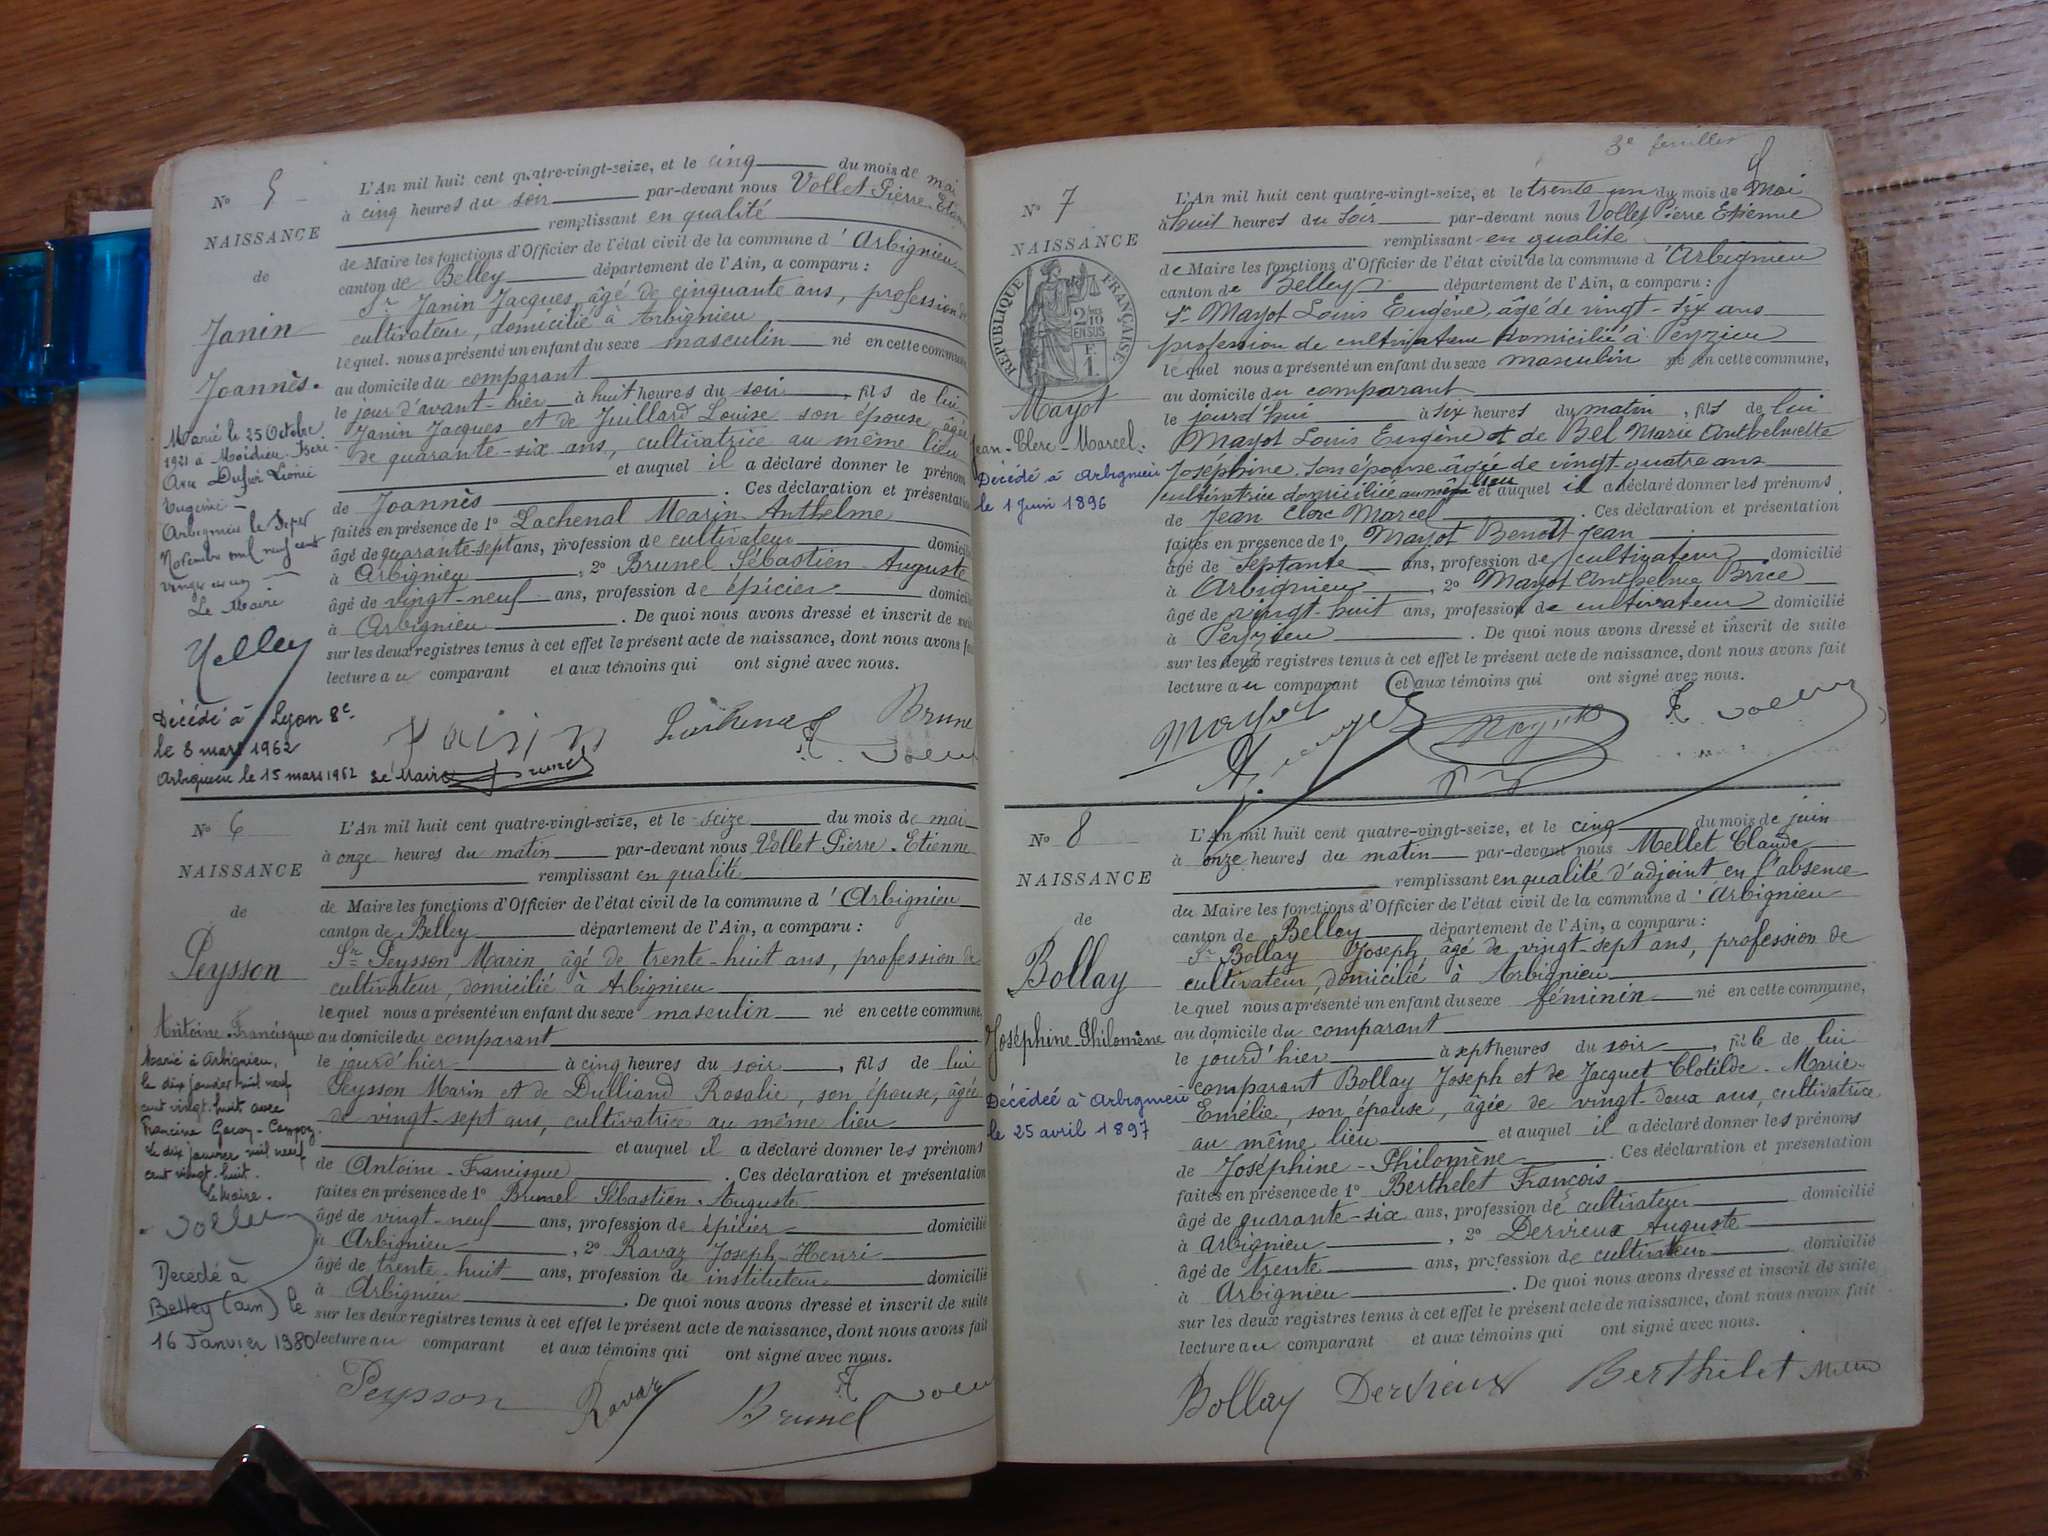 No 5
NAISSANCE
de
Janin
Joannès.
Marié le 25 Octobre
1921 à Moidieu Isère
Eugénie
Arbignieu le Sept
Novembre mil neuf cent
vingt et un
Le Maire
Décédé à Lyon 8e.
le 8 mars 1962
Arbignieu le 15 mars 1962 Le Maire
L'An mil huit cent quatre-vingt-seize, et le cinq du mois de mai
à cinq heures du soir par-devant nous Vollet Pierre-Etienne
remplissant en qualité
de Maire les fonctions d'Officier de l'état civil de la commune d'Arbignieu
canton de Belley département de l'Ain, a comparu :
Sr Janin Jacques, âgé de cinquante ans, profession de
cultivateur, domicilié à Arbignieu,
lequel nous a présenté un enfant du sexe masculin né en cette commune
au domicile du comparant
le jour d'avant-hier à huit heures du soir, fils de lui
Janin Jacques et de Juillard Louise son épouse, âgée
de quarante-six ans, cultivatrice au même lieu
et auquel il a déclaré donner le prénom
de Joannès. Ces déclaration et présentation
faites en présence de 1o Lachenal Marin-Anthelme
âgé de quarante-sept ans, profession de cultivateur domicilié
à Arbignieu, 2o Brunel Sébastien-Auguste
âgé de vingt-neuf ans, profession de épicier domicilié
à Arbignieu. De quoi nous avons dressé et inscrit de suite
sur les deux registres tenus à cet effet le présent acte de naissance, dont nous avons fait
lecture au comparant et aux témoins qui ont signé avec nous.
Janin Lachenal Brunel
No 6
NAISSANCE
de
Peysson
Antoine-Francisque
Marié à Arbignieu,
le dix janvier mil neuf
cent vingt-huit avec
Francine
Le dix janvier mil neuf
cent vingt-huit.
Le Maire.
Vollet
Décédé à
Belley (Ain) le
16 Janvier 1980
L'An mil huit cent quatre-vingt-seize, et le seize du mois de mai
à onze heures du matin par-devant nous Vollet Pierre-Etienne
remplissant en qualité
de Maire les fonctions d'Officier de l'état civil de la commune d'Arbignieu
canton de Belley département de l'Ain, a comparu :
Sr Peysson Marin âgé de trente-huit ans, profession de
cultivateur, domicilié à Arbignieu
lequel nous a présenté un enfant du sexe masculin né en cette commune,
au domicile du comparant
le jourd'hier à cinq heures du soir, fils de lui
Peysson Marin et de Dulliand Rosalie, son épouse, âgée
de vingt-sept ans, cultivatrice au même lieu
et auquel il a déclaré donner les prénoms
de Antoine-Francisque. Ces déclaration et présentation
faites en présence de 1o Brunel Sébastien-Auguste
âgé de vingt-neuf ans, profession de épicier domicilié
à Arbignieu, 2o Ravaz Joseph-Henri
âgé de trente-huit ans, profession de instituteur domicilié
à Arbignieu. De quoi nous avons dressé et inscrit de suite
sur les deux registres tenus à cet effet le présent acte de naissance, dont nous avons fait
lecture au comparant et aux témoins qui ont signé avec nous.
Peysson Ravaz Brunel Vollet
3e feuillet
No 7
NAISSANCE
RÉPUBLIQUE FRANÇAISE
2/10 EN SUS
F. 1
Mayot
Jean-Clerc-Marcel.
Décédé à Arbignieu
le 1 Juin 1896
L'An mil huit cent quatre-vingt-seize, et le trente-un du mois de Mai
à huit heures du soir par-devant nous Vollet Pierre Etienne
remplissant en qualité
de Maire les fonctions d'Officier de l'état civil de la commune d'Arbignieu
canton de Belley département de l'Ain, a comparu :
Sr Mayot Louis Eugène, âgé de vingt-six ans
profession de cultivateur domicilié à Peyzieu
lequel nous a présenté un enfant du sexe masculin né en cette commune,
au domicile du comparant
le jourd'hui à six heures du matin, fils de lui
Mayot Louis Eugène et de Bel Marie Anthelmette
Joséphine, son épouse âgée de vingt-quatre ans
cultivatrice domiciliée au même lieu et auquel il a déclaré donner les prénoms
de Jean Clerc Marcel. Ces déclaration et présentation
faites en présence de 1o Mayot Benoît Jean
âgé de septante ans, profession de cultivateur domicilié
à Arbignieu, 2o Mayot Anthelme Brice
âgé de vingt-huit ans, profession de cultivateur domicilié
à Peyzieu. De quoi nous avons dressé et inscrit de suite
sur les deux registres tenus à cet effet le présent acte de naissance, dont nous avons fait
lecture au comparant et aux témoins qui ont signé avec nous.
Mayot Vollet
No 8
NAISSANCE
de
Bollay
Joséphine-Philomène
Décédée à Arbignieu
le 25 avril 1897
L'An mil huit cent quatre-vingt-seize, et le cinq du mois de juin
à onze heures du matin par-devant nous Mellet Claude
remplissant en qualité d'adjoint en l'absence
du Maire les fonctions d'Officier de l'état civil de la commune d'Arbignieu
canton de Belley département de l'Ain, a comparu :
Sr Bollay Joseph, âgé de vingt-sept ans, profession de
cultivateur, domicilié à Arbignieu
lequel nous a présenté un enfant du sexe féminin né en cette commune,
au domicile du comparant
le jourd'hier à sept heures du soir, fille de lui
comparant Bollay Joseph et de Jacquet Clotilde-Marie-
Emélie, son épouse, âgée de vingt-deux ans, cultivatrice
au même lieu et auquel il a déclaré donner les prénoms
de Joséphine-Philomène. Ces déclaration et présentation
faites en présence de 1o Berthelet François
âgé de quarante-six ans, profession de cultivateur domicilié
à Arbignieu, 2o Dervieux Auguste
âgé de trente ans, profession de cultivateur domicilié
à Arbignieu. De quoi nous avons dressé et inscrit de suite
sur les deux registres tenus à cet effet le présent acte de naissance, dont nous avons fait
lecture au comparant et aux témoins qui ont signé avec nous.
Bollay Dervieux Berthelet